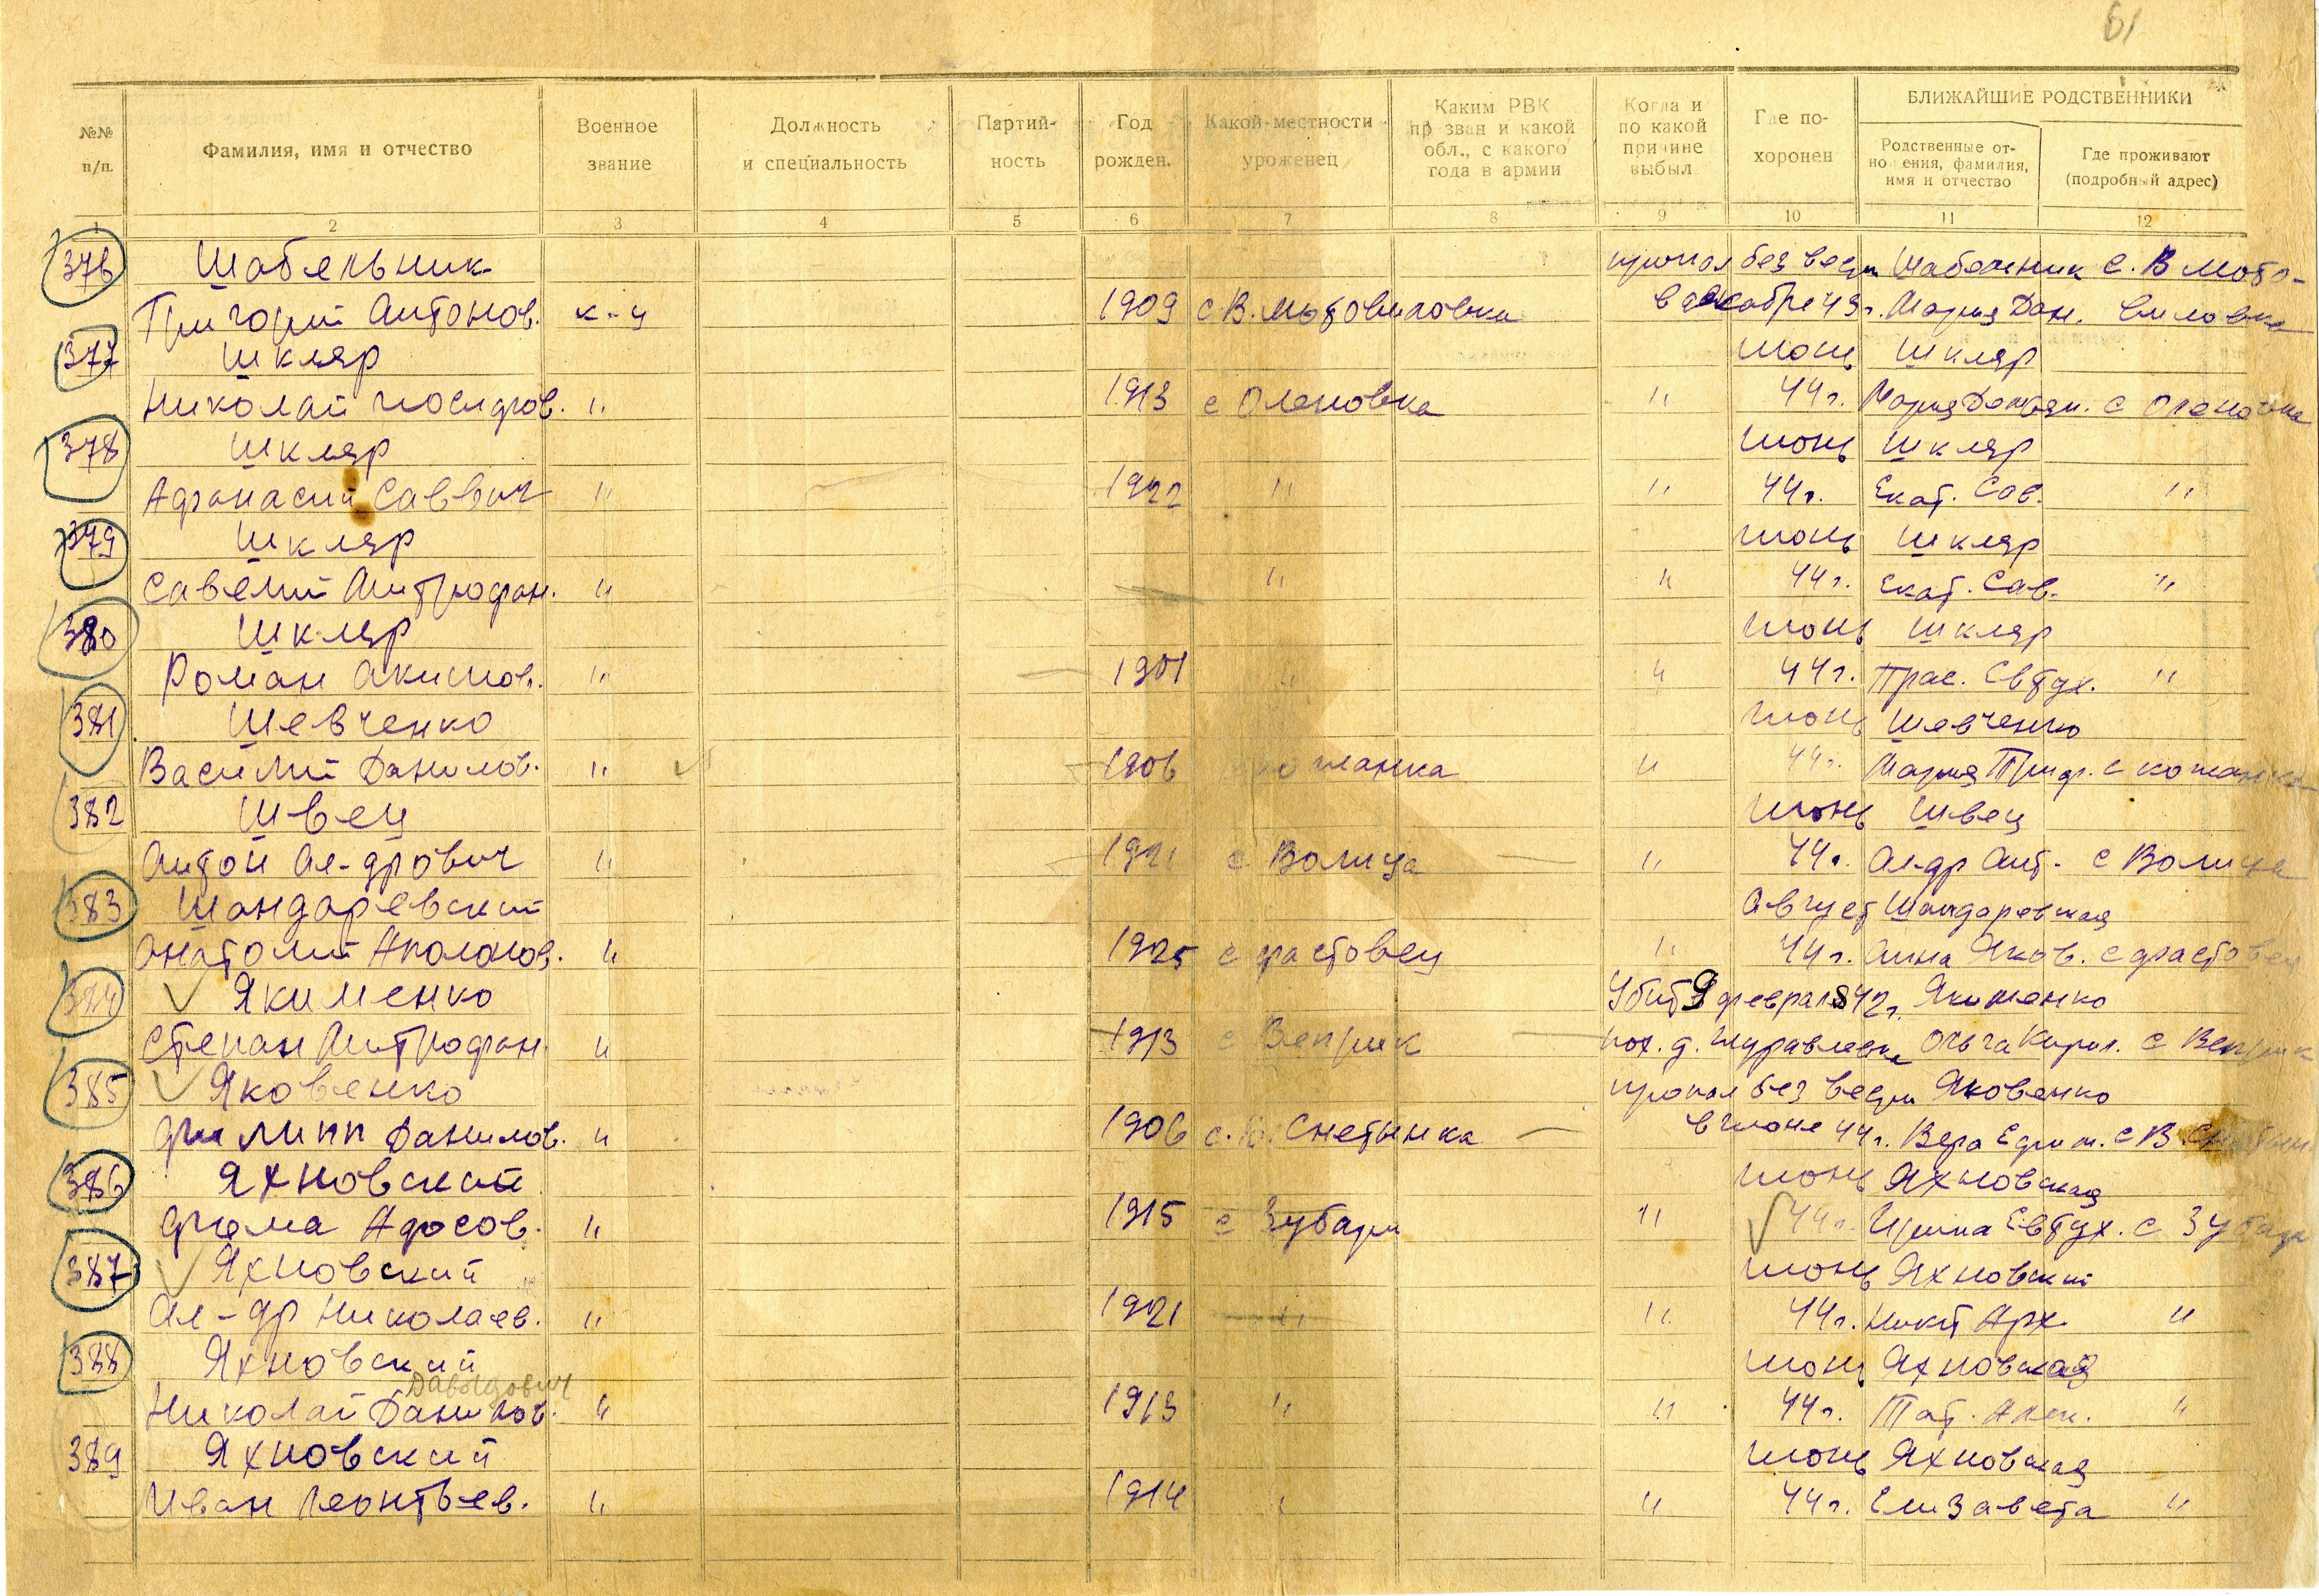 61
№№ п/п. Фамилия, имя и отчество Военное звание Должность и специальность Партийность Год рожден. Какой местности уроженец Каким РВК призван и какой обл., с какого года в армии Когда и по какой причине выбыл Где похоронен БЛИЖАЙШИЕ РОДСТВЕННИКИ
Родственные отношения, фамилия, имя и отчество Где проживают (подробный адрес)
1 2 3 4 5 6 7 8 9 10 11 12
376 Шабельник пропал без вести Шабельник с. В Мото-
Григорий Антонов. к-ц 1909 с. В. Мотовиловка в декабре 43г. Мария Дан. виловка
377 Шкляр июнь Шкляр
Николай Иосифов. " 1913 с Оленовка " 44г. Мария Демьян. с Оленовка
378 Шкляр июнь Шкляр
Афанасий Саввич " 1922 " " 44г. Екат. Сав. "
379 Шкляр июнь Шкляр
Савелий Митрофан. " " " 44г. Екат. Сав. "
380 Шкляр июнь Шкляр
Роман Акимов. " 1901 " " 44г. Прас. Евтух. "
381 Шевченко июнь Шевченко
Василий Данилов. " 1906 Кожанка " 44г. Мария Григ. с Кожанка
382 Швец июнь Швец
Антон Ал-дрович " 1921 с Волица " 44г. Ал-др Ант. с Волица
383 Шандаревский Август Шандаревская
Анатолий Аполонов. " 1925 с Фастовец " 44г. Анна Яков. с Фастовец
Якименко Убит 9 февраля 42г. Якименко
Степан Митрофан. " 1913 с Веприк пох. д. Журавлевка Ольга Кирил. с Веприк
385 Яковенко пропал без вести Яковенко
Филипп Данилов. " 1906 с. Снетынка в июне 44г. Вера Ефим. с В. Снетын.
386 Яхновский июнь Яхновская
Фома Афосов. " 1915 с Зубари " 44г. Ирина Евтух. с Зубари
387 Яхновский июнь Яхновский
Ал-др Николаев. " 1921 " " 44г. Никит Арх. "
388 Яхновский июнь Яхновская
Давыдович
Николай Данилов. " 1913 " " 44г. Тат. Алек. "
389 Яхновский июнь Яхновская
Иван Леонтьев. " 1914 " " 44г. Елизавета "